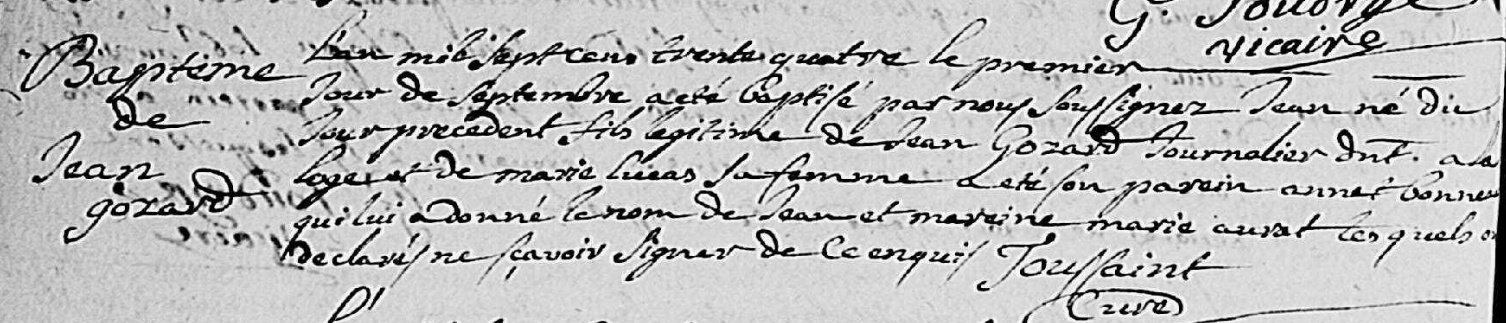 G. Jouorye
vicaire
Baptême
de
Jean
gozard
L'an mil sept cens trente quatre le premier
Jour de septembre a eté baptisé par nous soussignez Jean né du
Jour precedent fils legitime de Jean Gozard Journalier dnt. a la
loge et de marie lucas sa femme a eté son parein annet bonne
qui lui a donné le nom de Jean et mareine marie aurat lesquels o
declarés ne sçavoir signer de ce enquis Toussaint
Curé